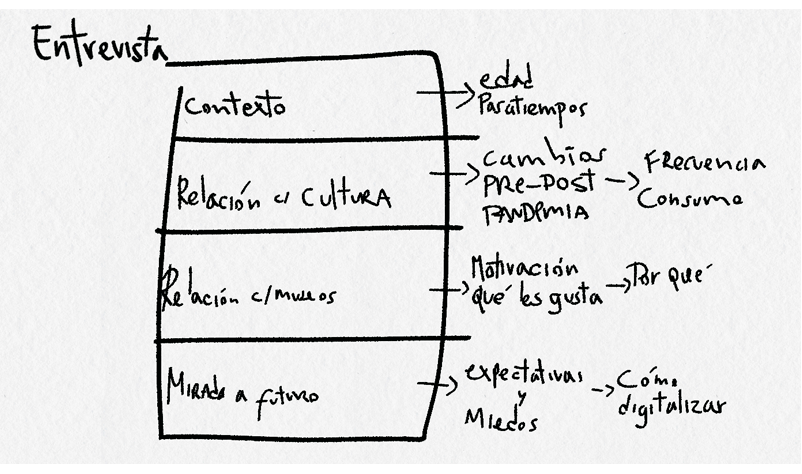 Entrevista
Contexto
edad
Pasatiempos
Relación c/ CULTURA
cambios
PRE-POST
PANDEMIA
FRECUENCIA
Consumo
Relación c/museos
Motivación
qué les gusta
Por qué
MIRADA a futuro
expectativas
y
Miedos
Cómo
digitalizar